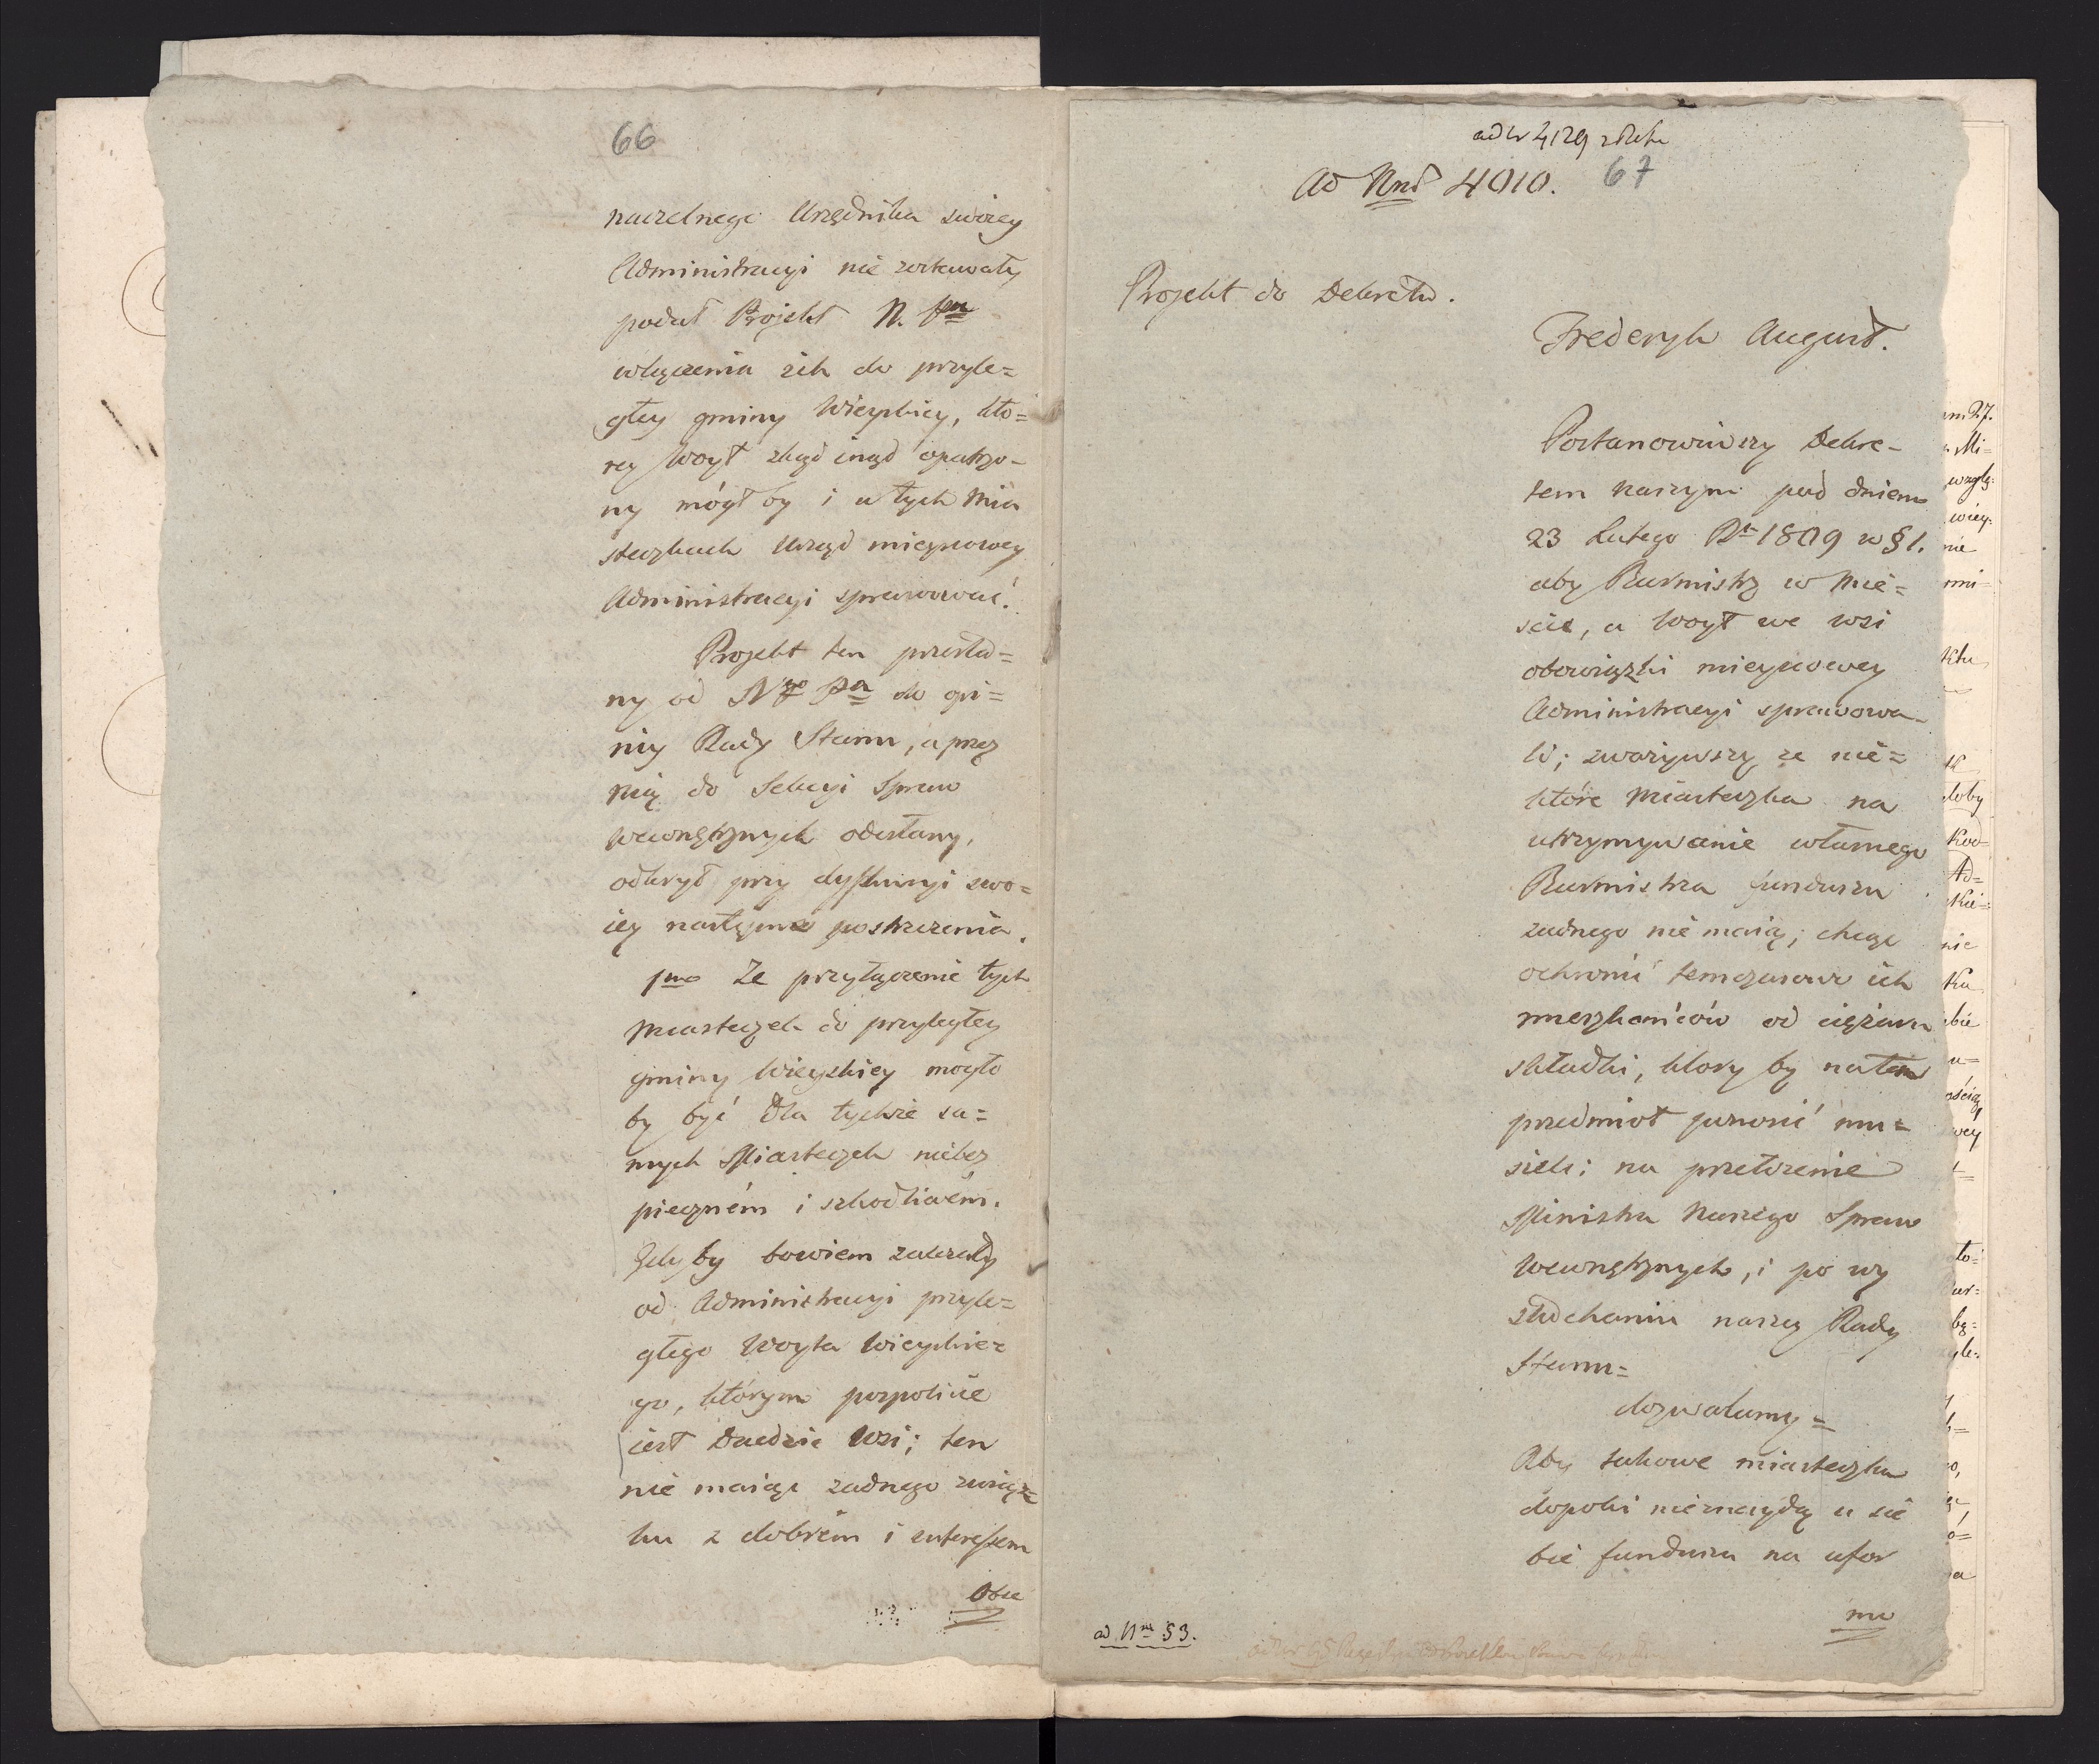 66
naczelnego Urzędnika swoiey
Administracyi nie zostawały
podał Projekt N. Pan
włączenia ich do przyle=
głey gminy Wieyskiey, któ=
rey Woyt zkąd inąd opatrzo-
ny mógł by i w tych Mia
steczkach Urząd mieyscowey
Administracyi sprawować.
Projekt ten przesła=
ny od Ngo Pa do opi=
nii Rady Stanu, a przez
nią do Sekcyi Spraw
Wewnętrznych odesłany,
odkrył przy dyskusyi swo=
iey następne postrzeżenia.
1mo Ze przyłączenie tych
Miasteczek do przyległey
gminy Wieyskiey mogło
by być dla tychże sa=
mych Miasteczek niebez
pieczném i szkodliwém.
Gdyby bowiem zależały
od Administracyi przyle=
głego Woyta Wieyskie=
go, którym pospolicie
iest Dziedzic Wsi; ten
nie maiąc żadnego związ=
ku z dobrem i interessem
Obu
ad Nr 4129
ad Nrum 4010. 67
Projekt do Dekretu.
Frederyk August.
Postanowiwszy Dekre-
tem naszym pod dniem
23 Lutego Ru 1809 w § 1.
aby Burmistrz w Mie=
ście, a Woyt we wsi
obowiązki mieyscowey
Administracyi sprawowa-
li; zważywszy że nie=
które Miasteczka na
utrzymywanie własnego
Burmistrza funduszu
żadnego nie maią; chcąc
ochronić temczasowo ich
mieszkańców od ciężaru
składki, ktory by na ten
przedmiot ponosić mu=
sieli: na przełożenie
Ministra Naszego Spraw
Wewnętrznych, i po wy
słuchaniu naszey Rady
Stanu=
dozwalamy=
Aby takowe miasteczka
dopoki nieznaydą u sie
bie funduszu na ufor
mo
ad Nrum 53.